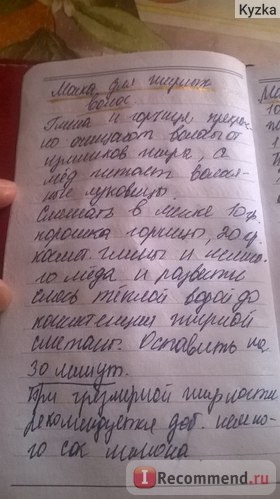 Kyzka
Маска для жирных
волос
Глина и горчица прекрас
но очищают волосы от
излишков жира, а
мёд питает волося-
ные луковицы.
Смешать в миске 10 г
порошка горчицы, 20 гр
космет. глины и немно
го мёда и развести
смесь тёплой водой до
консистенции жирной
сметаны. Оставить на
30 минут.
При чрезмерной жирности
рекомендуется доб. немно-
го сок лимона.
Ма
10
I Recommend.ru